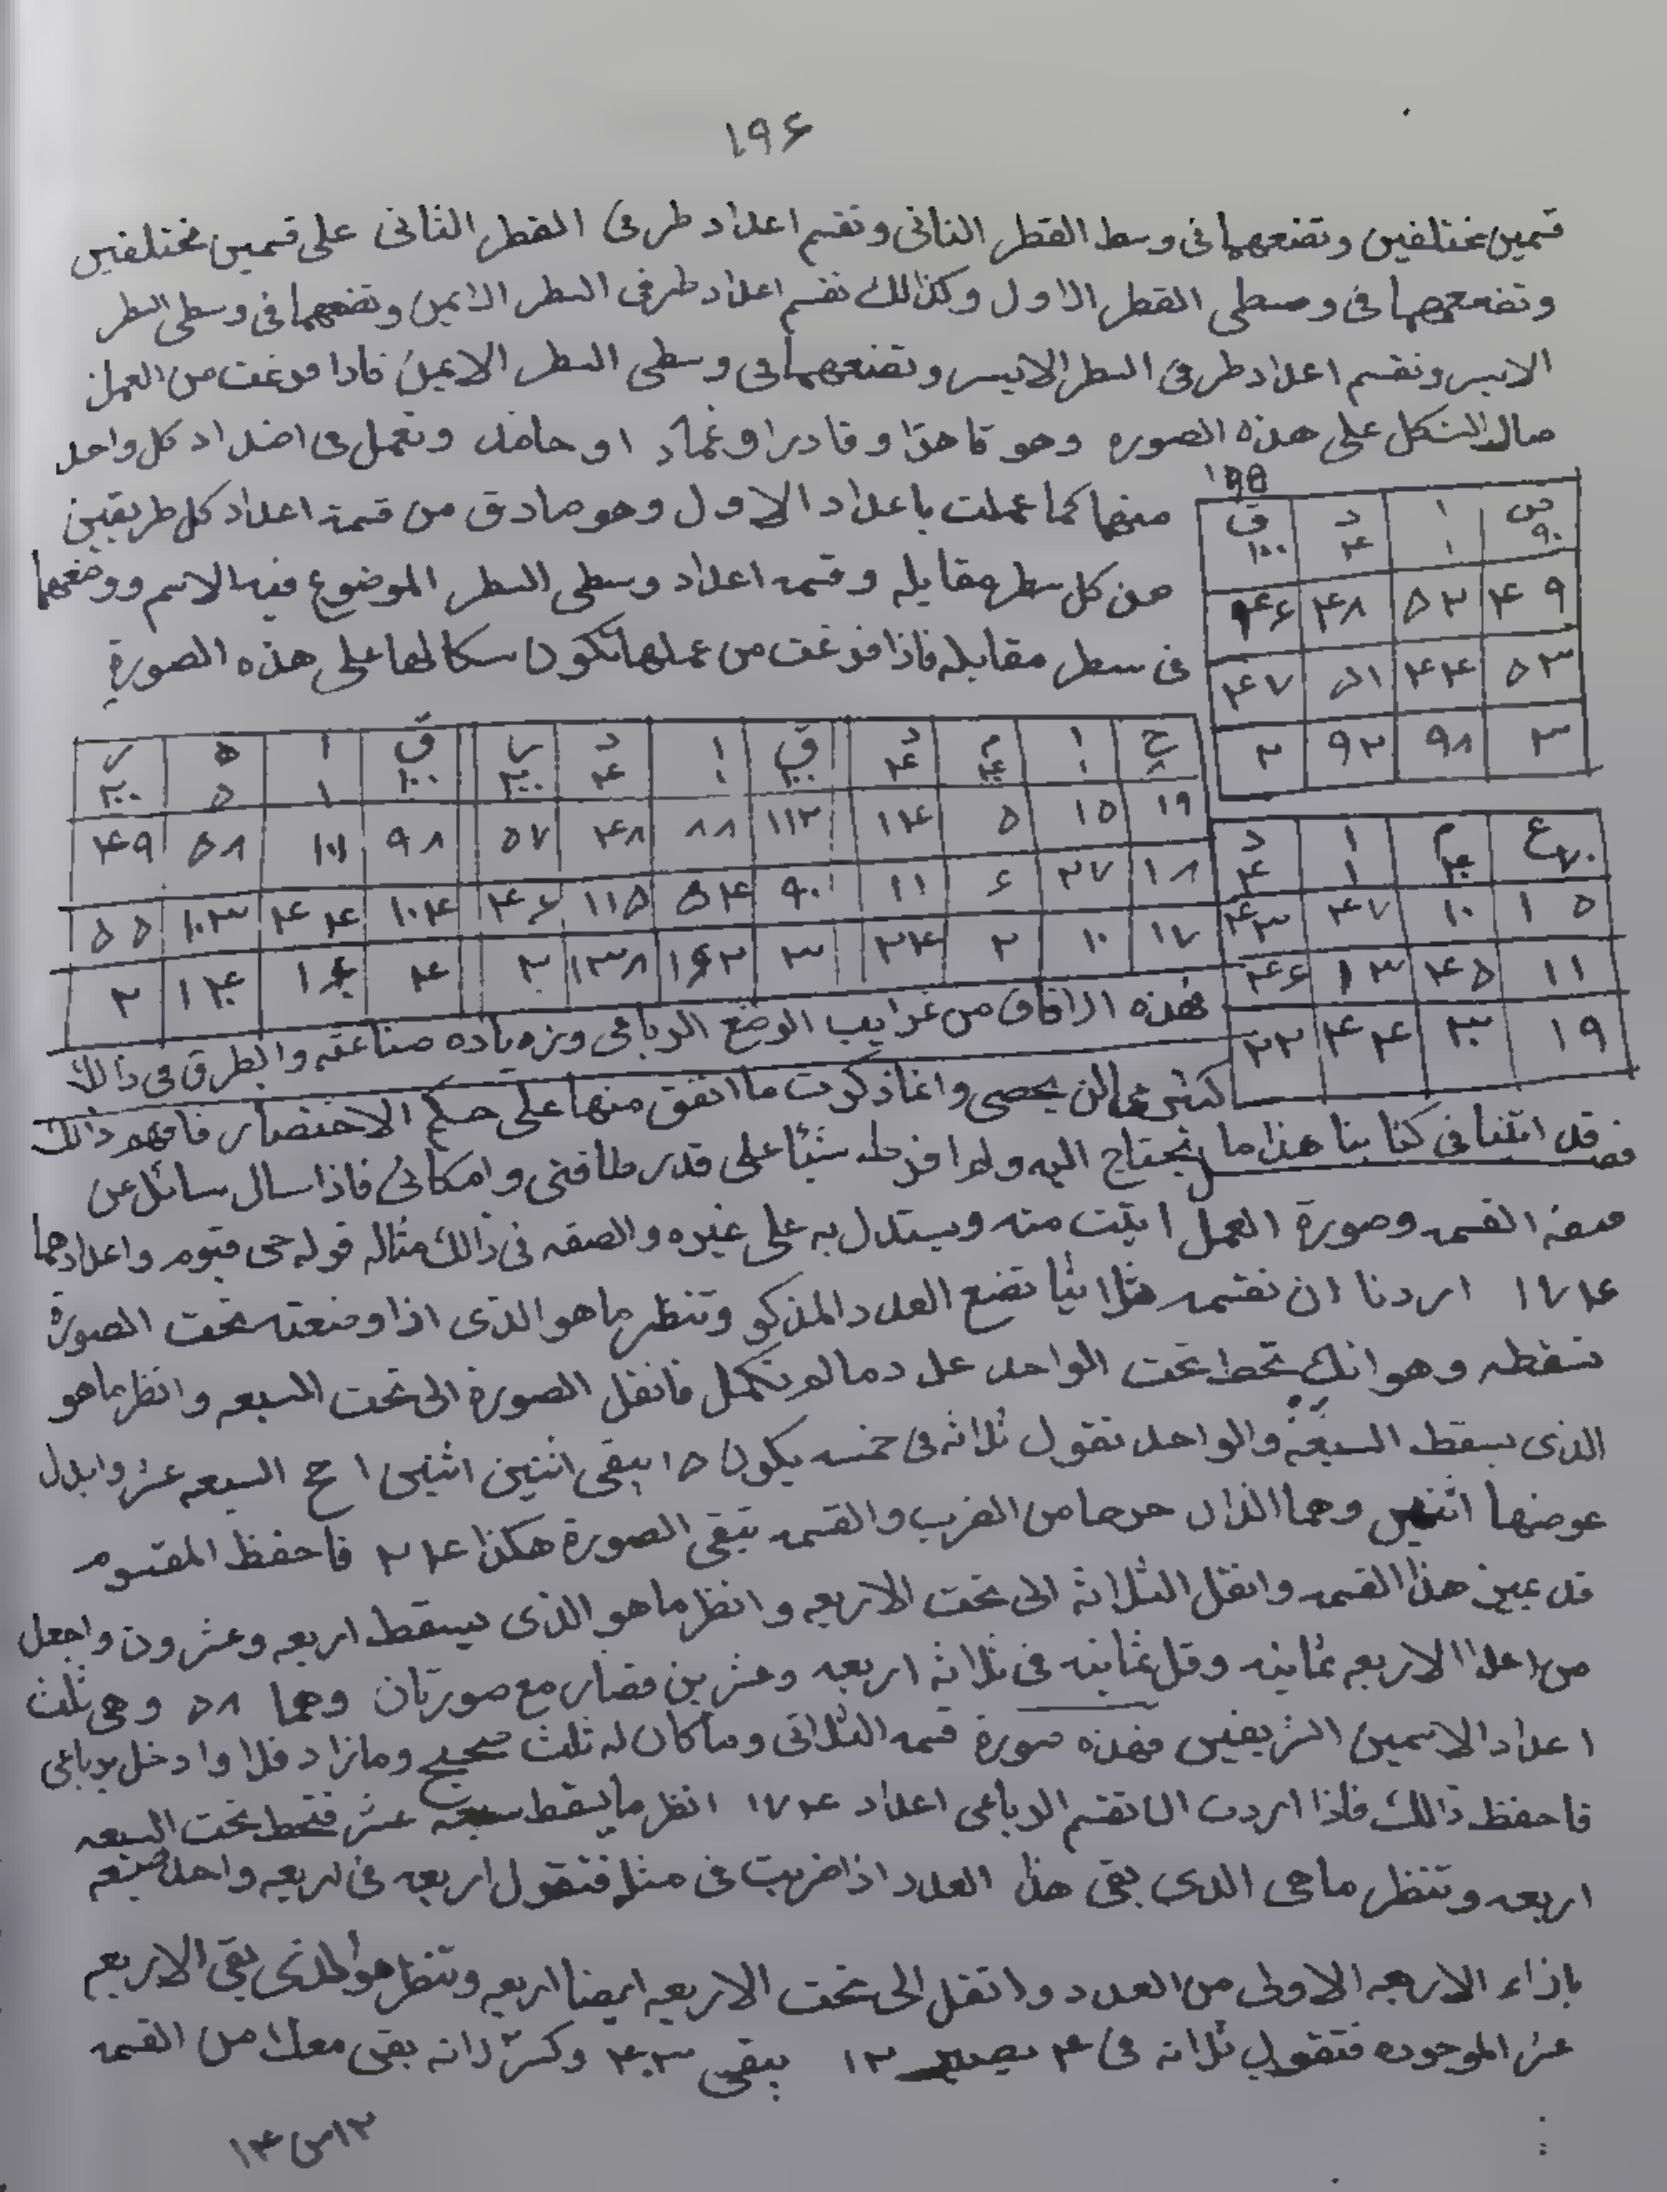 ١٩۶
قسمين مختلفين وتضعهما فى وسط القطر الثانى وتقسم اعداد طرفى القطر الثانى على قسمين مختلفين
وتضعهما فى وسطى القطر الاول وكذالك تقسم اعداد طرفى السطر الايمن وتضعهما فى وسطى السطر
الايسر وتقسم اعداد طرفى السطر الايسر وتضعهما فى وسطى السطر الايمن فاذا فرغت من العمل
صار الشكل على هذه الصوره وهو قاهرا وقادرا او حافظ وتعمل فى اضداد كل واحد
منهما كما عملت باعداد الاول وهو صادق من قسمة اعداد كل طريقين
من كل سطر مقابله وقسمه اعداد وسطى السطر الموضوع فيه الاسم ووضعهما
فى سطر مقابله فاذا فرغت من عملها تكون سكالها على هذه الصورة
١٩٥
ص ٩٠ ا ١ د ۴ ق ١٠٠
۴٩ ٥٣ ۴٨ ۴۶
٥٣ ۴۴ ٥١ ۴٧
٣ ٩٨ ٩٢ ٢
ح ٨ ا ١ م ۴٠ د ۴ ق ١٠٠ ا ١ د ۴ ر ٢٠٠ ق ١٠٠ ا ١ ه ٥ ر ٢٠٠
١٩ ١٥ ٥ ١۴ ١١٢ ٨٨ ۴٨ ٥٧ ٩٨ ١٠١ ٥٨ ۴٩
١٨ ٢٧ ۶ ١١ ٩٠ ٥۴ ١١٥ ۴۶ ١٠۴ ۴۴ ١٠٣ ٥٥
١٧ ١٠ ٢ ٢۴ ٣ ١۶٢ ١٣٨ ٢ ۴ ١۴٠ ٢
ع ٧٠ م ۴٠ ا ١ د ۴
١٥ ١٠ ۴٧ ۴٣
١١ ۴٥ ١٣ ۴۶
١٩ ٢٠ ۴۴ ٢٢
فهذه الافاق من غرايب الوضع الرباعى وزياده صناعته والطرق فى ذالك
كثير عمالن يحصى وانما ذكرت ما اتفق منها على حكم الاختصار فافهم ذالك
فقد اتينا فى كتابنا هذا ما يحتاج اليه ولم افرط شيئا على قدر طاقتى وامكانى فاذا سال سائل عن
صفة القسمه وصورة العمل اثبت منه ويستدل به على غيره والصفه فى ذالك مثاله قوله حى قيوم واعدادهما
١٧۴ اردنا ان نقسمه ثلاثيا تضع العدد المذكو وتنظر ما هو الذى اذا وضعته تحت الصورة
تسقطه وهو انك تحط تحت الواحد عدد مالم تكمل فانقل الصورة الى تحت السبعه وانظر ماهو
الذى يسقط السبعة والواحد تقول ثلاثه فى خمسه يكون ١٥ يبقى اثنين اثنين ا ح السبعه عشر وابدل
عوضها اثنين وهما الذان خرجا من الضرب والقسمه تبقى الصورة هكذا ٢۴ فاحفظ المقسوم
قد عين هذا القسمه وانقل الثلاثه الى تحت الاربعه وانظر ما هو الذى يسقط اربعه وعشرون واجعل
من اعلا الاربعه ثمانيه وقل ثمانيه فى ثلاثه اربعه وعشرين فصار مع صورتان وهما ٥٨ وهى ثلث
اعداد الاسمين الشريفين فهذه صورة قسمه الثلاثى وما كان له ثلث صحيح وما زاد فلا وادخل رباعى
فاحفظ ذالك فاذا اردت ان تقسم الرباعى اعداد ١٧۴ انظر ما يسقط سبعه عشر فتحط تحت السبعه
اربعه وتنظر ما هى الذى بقى هذا العدد اذا ضربت فى مثله فتقول اربعه فى اربعه واحد ضعه
بازاء الاربعه الاولى من العدد وانقل الى تحت الاربعه ايضا اربعه وتنظر هو الذى بقى الاربعه
عشر الموجوده فتقول ثلاثه فى ۴ يصير ١٢ يبقى ۴٣ وكسر لانه بقى معك من القسمه
١٣س١۴